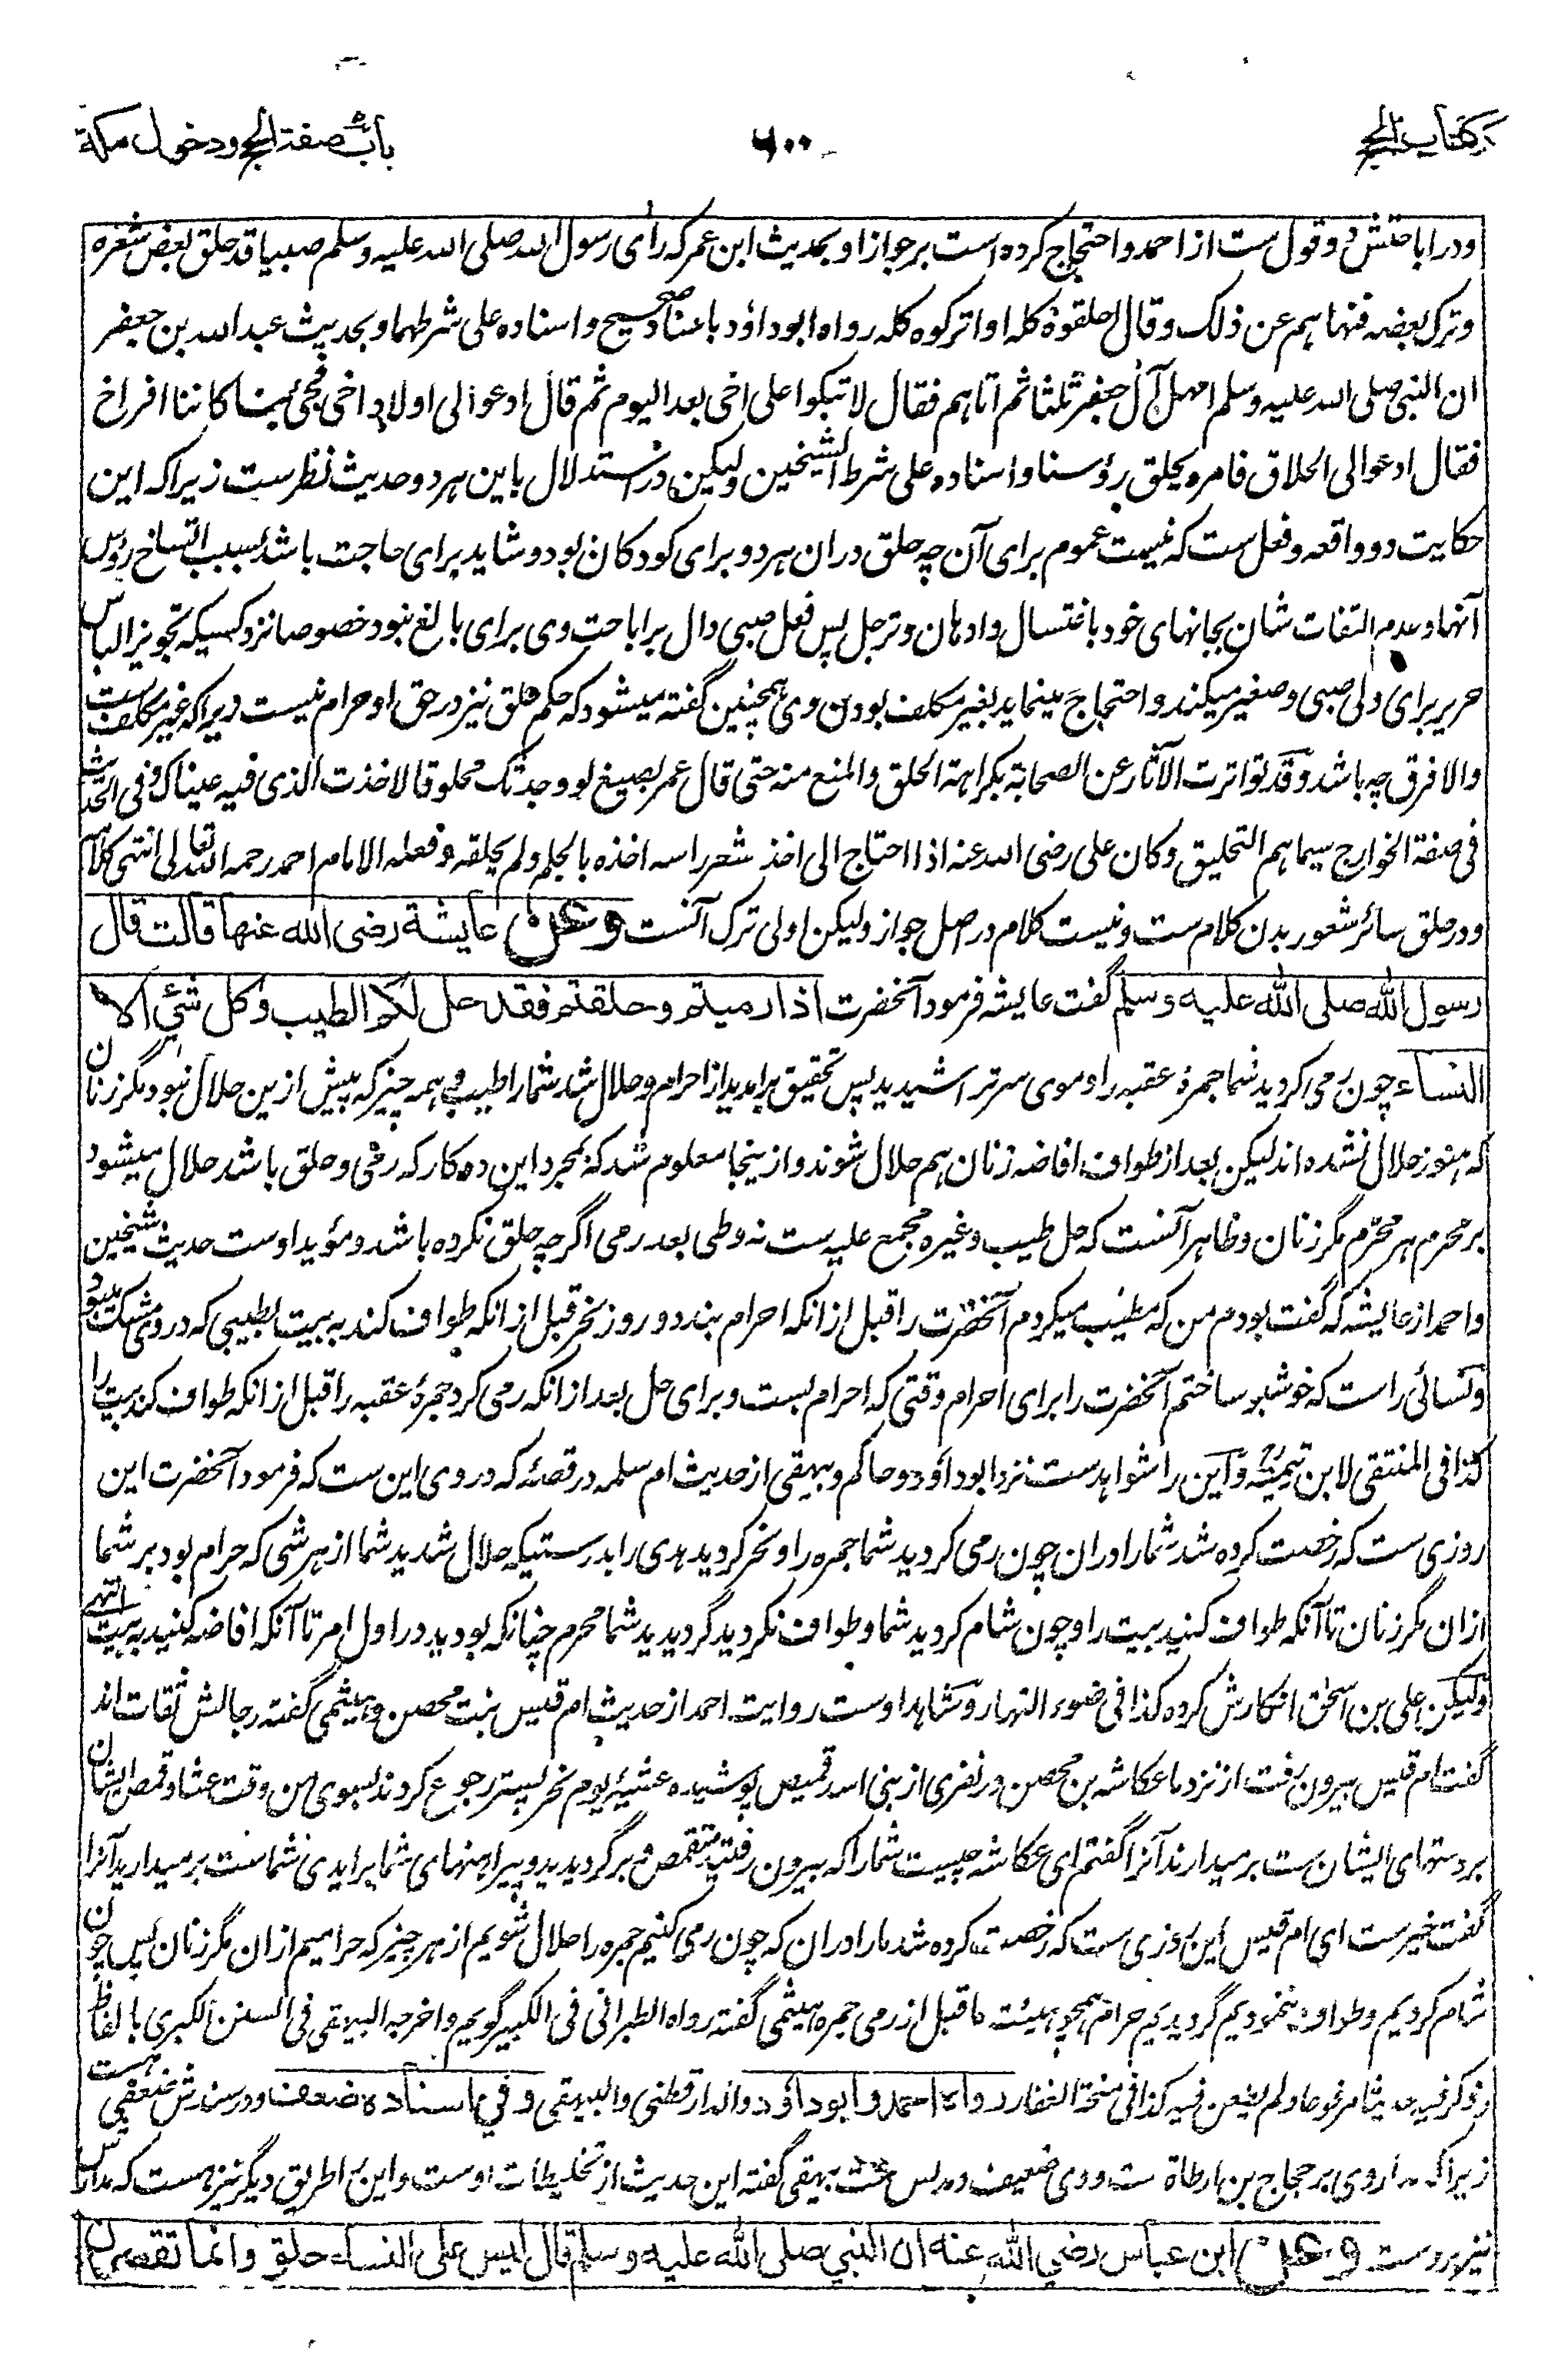 کتاب الحج
۶۰۰
باب صفة الحج ودخول مكة
ودر اباحتش دو قول ست از احمد واحتجاج کرده است بر جواز او بحدیث ابن عمر که رأی رسول الله صلی الله علیه وسلم صبیا قد حلق بعض شعره
وترک بعضه فنهاهم عن ذلک وقال احلقوه کله او اترکوه کله رواه ابوداؤد باسناد صحیح واسناده علی شرطهما وبحدیث عبد الله بن جعفر
ان النبی صلی الله علیه وسلم امهل آل جعفر ثلثا ثم اتاهم فقال لا تبکوا علی اخی بعد الیوم ثم قال ادعوا لی اولاد اخی فجئ بنا کاننا افراخ
فقال ادعوا لی الحلاق فامره یحلق رؤسنا واسناده علی شرط الشیخین ولیکن در استدلال باین هر دو حدیث نظرست زیرا که این
حکایت دو واقعه وفعل ست که نیست عموم برای آن چه حلق دران هر دو برای کودکان بود وشاید برای حاجت باشد بسبب اتساخ رؤس
آنها وعدم التفات شان بجانهای خود باغتسال وادهان وترجل پس فعل صبی دال بر اباحت وی برای بالغ نبود خصوصا نزد کسیکه تجویز الباس
حریر برای ولی صبی وصغیر میکند واحتجاج مینماید بغیر مکلف بودن وی همچنین گفته میشود که حکم حلق نیز در حق او حرام نیست زیرا که غیر مکلف ست
والا فرق چه باشد وقد تواترت الآثار عن الصحابة بکراهة الحلق والمنع منه حتی قال عمر لصبیغ لو وجدتک محلوقا لاخذت الذی فیه عیناک وفی الحدیث
فی صفة الخوارج سیماهم التحلیق وکان علی رضی الله عنه اذا احتاج الی اخذ شعر راسه اخذه بالجلم ولم یحلقه وفعله الامام احمد رحمه الله تعالی انتهی کلامه
ودر حلق سائر شعور بدن کلام ست ونیست کلام در اصل جواز ولیکن اولی ترک آنست وعن عایشة رضی الله عنها قالت قال
رسول الله صلی الله علیه وسلم گفت عایشه فرمود آنحضرت اذا رمیتم وحلقتم فقد حل لکم الطیب وکل شئ الا
النساء چون رمی کردید شما جمرهٔ عقبه را وموی سر تراشیدید پس تحقیق برآمدید از احرام وحلال شد شما را طیب وهمه چیز که پیش ازین حلال نبود مگر زنان
که هنوز حلال نشده اند لیکن بعد از طواف افاضه زنان هم حلال شوند وازینجا معلوم شد که بمجرد این ده کار که رمی وحلق باشد حلال میشود
بر محرم هر محرّم مگر زنان وظاهر آنست که حل طیب وغیره مجمع علیه ست نه وطی بعد رمی اگر چه حلق نکرده باشد ومؤید اوست حدیث شیخین
واحمد از عایشه که گفت بودم من که مطیب میکردم آنحضرت را قبل ازانکه احرام بندد وروز نحر قبل ازانکه طواف کند به بیت بطیبی که دروی مشک بود
ونسائی راست که خوشبو ساختم آنحضرت را برای احرام وقتی که احرام بست وبرای حل بعد ازانکه رمی کرد جمرهٔ عقبه را قبل ازانکه طواف کند بیت را
کذا فی المنتقی لابن تیمیة واین را شواهدست نزد ابوداؤد وحاکم وبیهقی از حدیث ام سلمه در قصهٔ که دروی این ست که فرمود آنحضرت این
روزی ست که رخصت کرده شد شما را دران چون رمی کردید شما جمره را ونحر کردید هدی را بدرستیکه حلال شدید شما از هر شی که حرام بود بر شما
ازان مگر زنان تا آنکه طواف کنید بیت را وچون شام کردید شما وطواف نکردید گردیدید شما محرم چنانکه بودید در اول امر تا آنکه افاضه کنید به بیت انتهی
ولیکن علی بن اسحٰق انکارش کرده کذا فی ضوء النهار وشاهد اوست روایت احمد از حدیث ام قیس بنت محصن وهیثمی گفته رجالش ثقات اند
گفت ام قیس بیرون رفت از نزد ما عکاشه بن محصن در نفری از بنی اسد قمیص پوشیده عشیهٔ یوم نحر پستر رجوع کردند بسوی من وقت عشا وقمص ایشان
بر دستهای ایشان ست بر میدارند آنرا گفتم ای عکاشه چیست شما را که بیرون رفتید متقمص وبرگردیدید وپیراهنهای شما بر ایدی شماست بر میدارید آنرا
گفت خیرست ای ام قیس این روزی ست که رخصت کرده شد ما را دران که چون رمی کنیم جمره را حلال شویم از هر چیز که حرامیم ازان مگر زنان پس چون
شام کردیم وطواف ننمودیم گردیدیم حرام همچو هیئت ما قبل از رمی جمره هیثمی گفته رواه الطبرانی فی الکبیر گویم واخرجه البیهقی فی السنن الکبری بالفاظ
وذکر فیه حدیثا مرفوعا ولم یطعن فیه کذا فی منحة الغفار رواه احمد وابوداؤد والدارقطنی والبیهقی وفی اسناده ضعف ودر سندش ضعفی هست
زیرا که مدار وی بر حجاج بن ارطاة ست ووی ضعیف ومدلس ست بیهقی گفته این حدیث از تخلیطات اوست واین را طریق دیگر نیز هست که مدارس
نیز بروست وعن ابن عباس رضی الله عنه ان النبی صلی الله علیه وسلم قال لیس علی النساء حلق وانما تقصرن